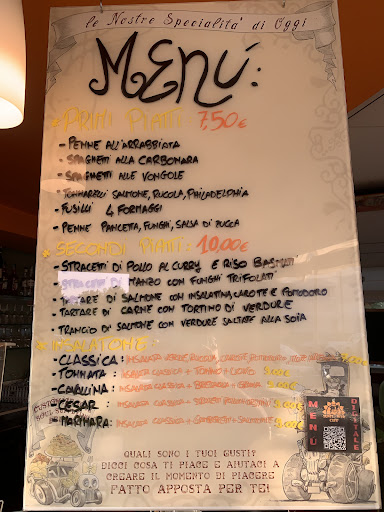 le Nostre Specialità di Oggi
MENÚ:
* PRIMI PIATTI: 7,50€
- PENNE ALL'ARRABBIATA
- SPAGHETTI ALLA CARBONARA
- SPAGHETTI ALLE VONGOLE
- TONNARELLI SALMONE, RUCOLA, PHILADELPHIA
- FUSILLI 4 FORMAGGI
- PENNE PANCETTA, FUNGHI, SALSA DI ZUCCA
* SECONDI PIATTI: 10,00€
- STRACCETTI DI POLLO AL CURRY E RISO BASMATI
- DI MANZO CON FUNGHI TRIFOLATI
- TARTARE DI SALMONE CON INSALATINA, CAROTE E POMODORO
- TARTARE DI CARNE CON TORTINO DI VERDURE
- TRANCIO DI SALMONE CON VERDURE SALTATE ALLA SOIA
* INSALATONE:
- CLASSICA: INSALATA VERDE, RUCOLA, CAROTE, POMODORI
- TONNATA: INSALATA CLASSICA + TONNO +
- INSALATA CLASSICA + BRESAOLA + GRANA
- CESAR: INSALATA CLASSICA +
- MARINARA: INSALATA CLASSICA +
MENÙ
DIGITALE
QUALI SONO I TUOI GUSTI?
DICCI COSA TI PIACE E AIUTACI A
CREARE IL MOMENTO DI PIACERE
FATTO APPOSTA PER TE!